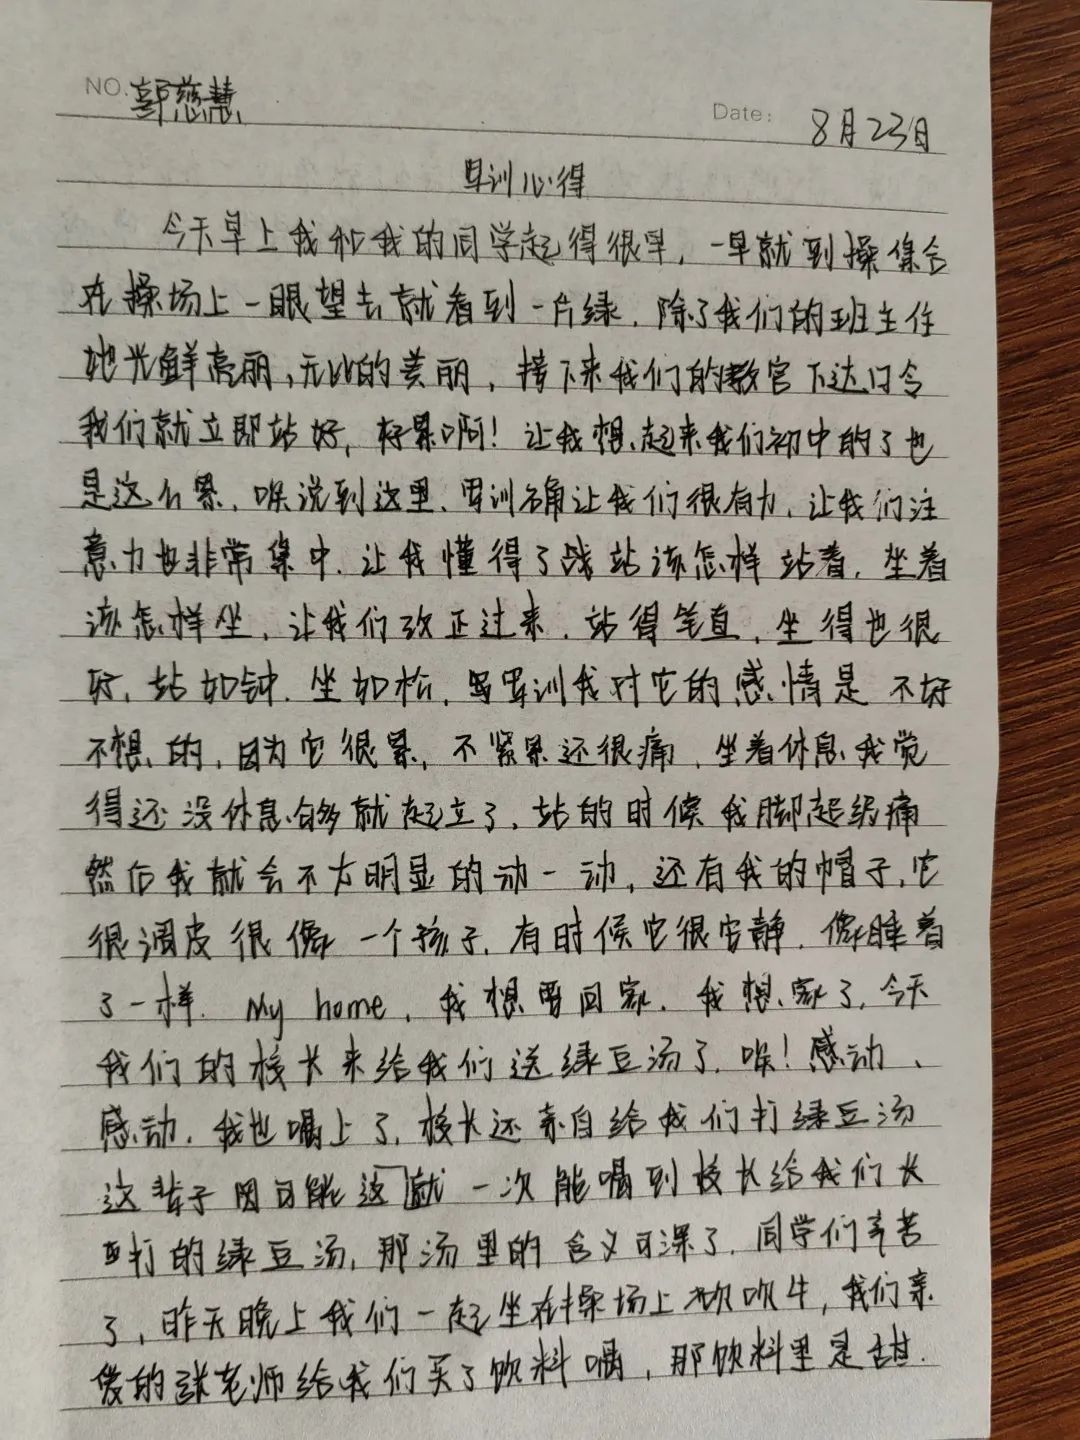 NO. 郭慈慧
Date: 8月23日
早训心得
今天早上我和我的同学起得很早,一早就到操集合
在操场上一眼望去就看到一片绿.除了我们的班主任
地光鲜亮丽,无比的美丽,接下来我们的教官下达口令
我们就立即站好,好累啊!让我想起来我们初中的了也
是这么累,唉说到这里.军训确让我们很有力,让我们注
意力也非常集中.让我懂得了战站该怎样站着,坐着
该怎样坐,让我们改正过来.站得笔直,坐得也很
好,站如钟.坐如松,军训我对它的感情是不好
不想的,因为它很累,不紧累还很痛,坐着休息我觉
得还没休息够就起立了,站的时候我脚超级痛
然后我就会不太明显的动一动,还有我的帽子,它
很调皮很像一个孩子,有时候它很安静.像睡着
了一样. My home,我想要回家.我想家了,今天
我们的校长来给我们送绿豆汤了.唉!感动、
感动.我也喝上了,校长还亲自给我们打绿豆汤
这辈子可能这就一次能喝到校长给我们长
打的绿豆汤,那汤里的含义可深了.同学们辛苦
了,昨天晚上我们一起坐在操场上吹吹牛,我们亲
爱的张老师给我们买了饮料喝,那饮料里是甜.